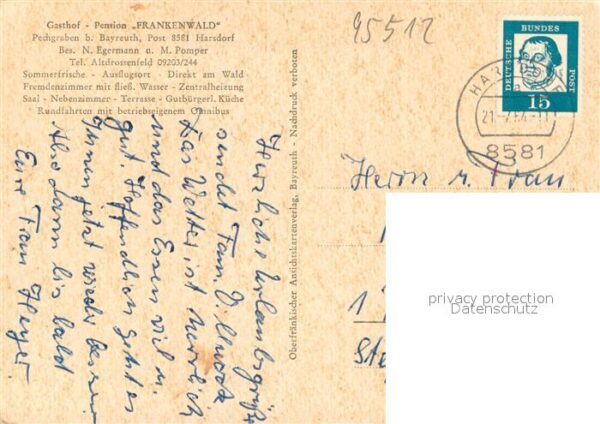 Gasthof - Pension „FRANKENWALD"
Pechgraben b. Bayreuth, Post 8581 Harsdorf
Bes. N. Egermann u. M. Pomper
Tel. Altdrossenfeld 09203/244
Sommerfrische - Ausflugsort - Direkt am Wald
Fremdenzimmer mit fließ. Wasser - Zentralheizung
Saal - Nebenzimmer - Terrasse - Gutbürgerl. Küche
Rundfahrten mit betriebseigenem Omnibus
Herzliche Urlaubsgrüße
sendet Fam.
Das Wetter ist herrlich
und das Essen viel u.
gut. Hoffendlich geht es
Ihnen jetzt wieder besser.
Also dann bis bald
Eure Frau Heyer.
Oberfränkischer Ansichtskartenverlag, Bayreuth - Nachdruck verboten
95512
DEUTSCHE BUNDES POST
15
HAR
8581
Herrn u. Frau
1
privacy protection
Datenschutz